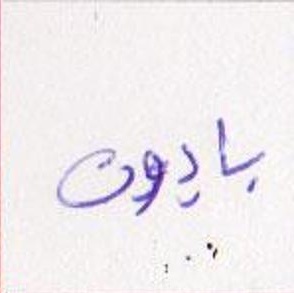 بادون